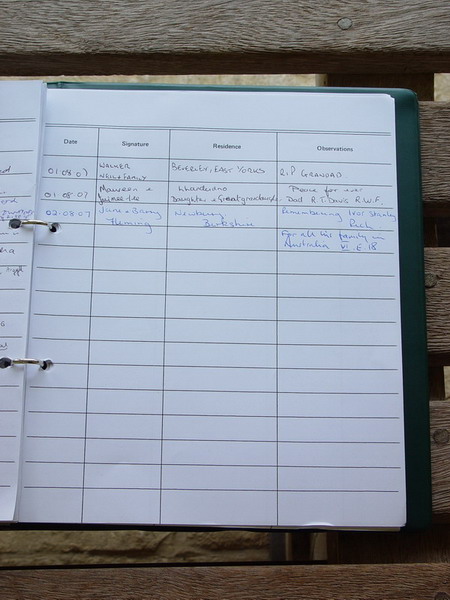 Date Signature Residence Observations
01.08.07 WALKER BEVERLEY, EAST YORKS R.I.P GRANDAD
NEIL & FAMILY
01.08.07 Maureen & Llandudno Peace for ever
Daughter & Great grandaughter Dad R.T. Davis R.W.F.
02.08.07 Jane & Barry Newbury Remembering Ivor Stanley
Fleming Berkshire
For all his family in
Australia